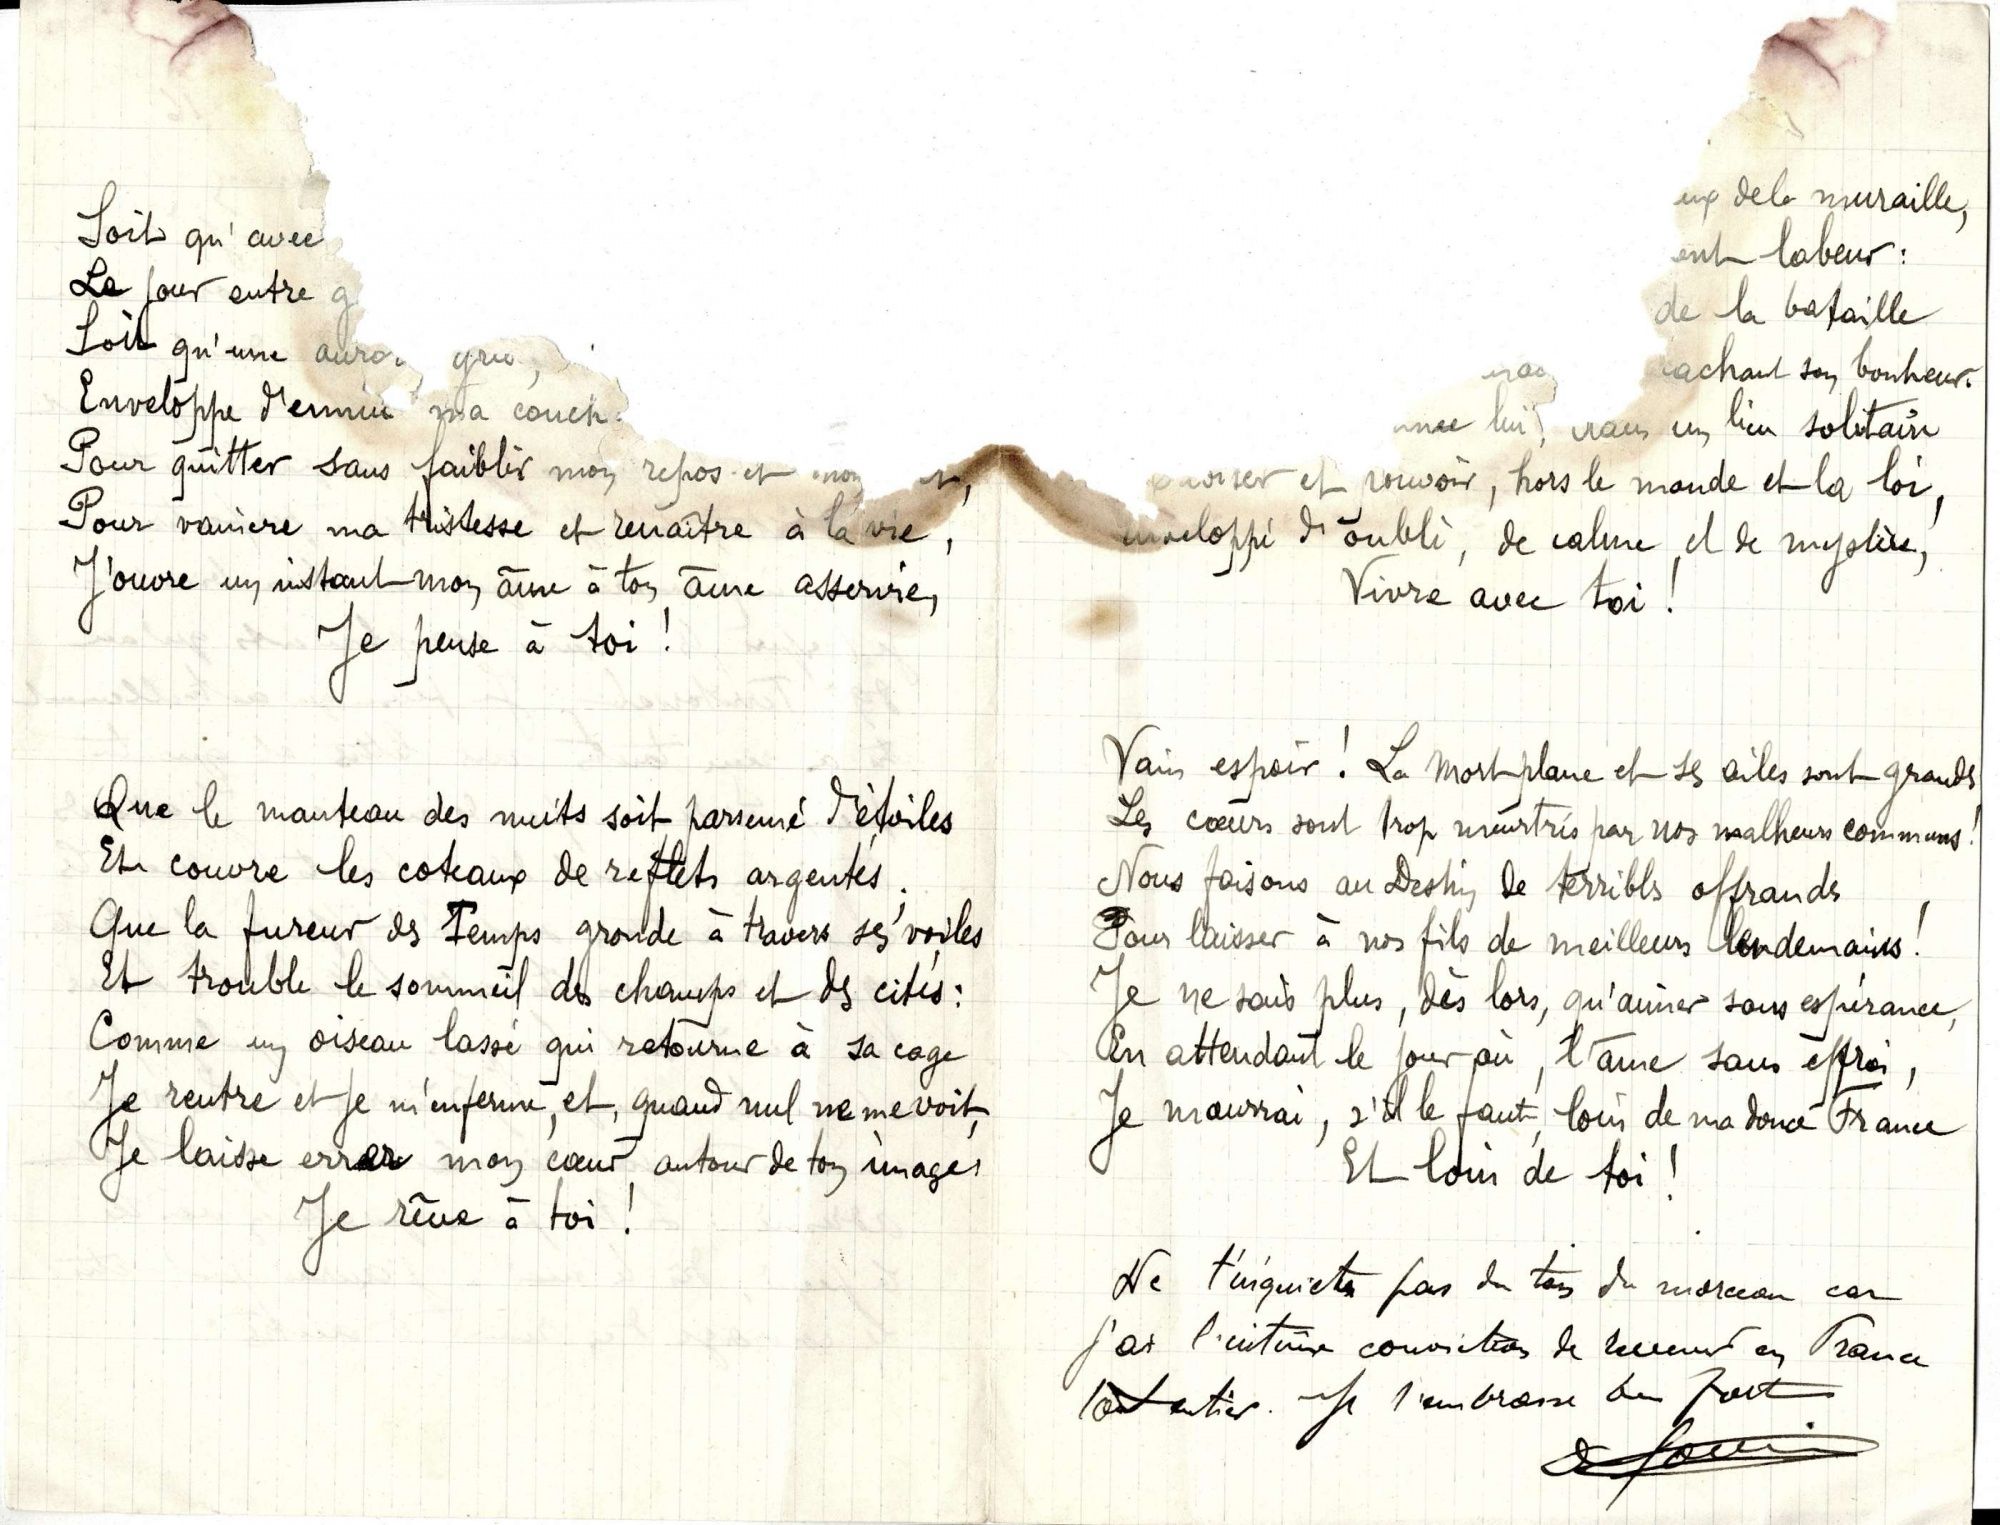 Soit qu'avec
Le jour entre
Soit qu'une
Enveloppe d'ennui ma
Pour quitter sans faiblir mon repos et mon
Pour vaincre ma tristesse et renaître à la vie,
J'ouvre un instant mon âme à ton âme asservie,
Je pense à toi !
Que le manteau des nuits soit parsemé d'étoiles
Et couvre les coteaux de reflets argentés,
Que la fureur des Temps gronde à travers ses voiles
Et trouble le sommeil des champs et des cités :
Comme un oiseau lassé qui retourne à sa cage
Je rentre et je m'enferme, et, quand nul ne me voit,
Je laisse errer mon cœur autour de ton image,
Je rêve à toi !
de la muraille,
labeur :
de la bataille
son bonheur.
lui, dans un lieu solitaire
et pouvoir, hors le monde et la loi,
d'oubli, de calme et de mystère,
Vivre avec toi !
Vain espoir ! La Mort plane et ses ailes sont grandes
Les cœurs sont trop meurtris par nos malheurs communs !
Nous faisons au Destin de terribles offrandes
Pour laisser à nos fils de meilleurs lendemains !
Je ne sais plus, dès lors, qu'aimer sans espérance,
En attendant le jour où, l'âme sans effroi,
Je mourrai, s'il le faut, loin de ma douce France
Et loin de toi !
Ne t'inquiète pas du ton du morceau car
j'ai l'intime conviction de revenir en France
tout entier. Je t'embrasse bien fort